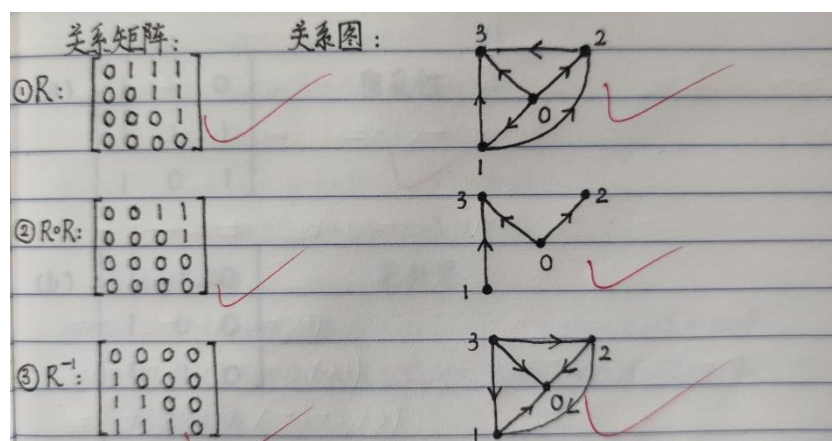 关系矩阵: 关系图:
3 2
①R:
0 1 1 1
0 0 1 1
0 0 0 1
0 0 0 0
0
1
3 2
②R∘R:
0 0 1 1
0 0 0 1
0 0 0 0
0 0 0 0
0
1
3 2
③R⁻¹:
0 0 0 0
1 0 0 0
1 1 0 0
1 1 1 0
0
1